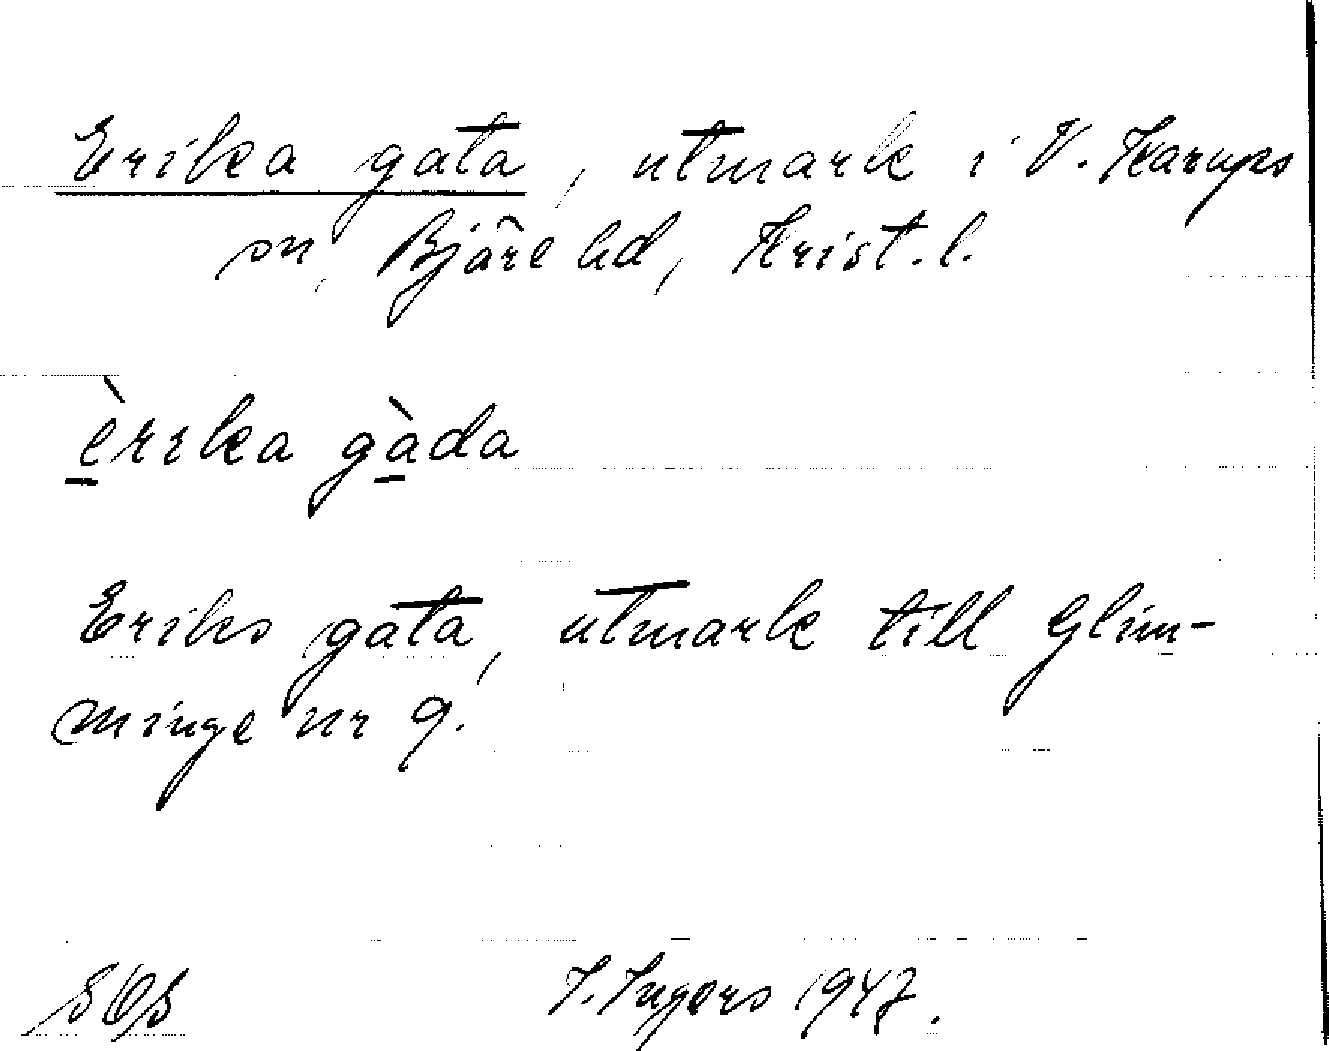 Erika gata, utmark i V. Karups
sn, Bjäre hd, Krist. l.
èrika gàda
Eriks gata, utmark till Glim-
minge nr 9.
I. Ingers 1947.